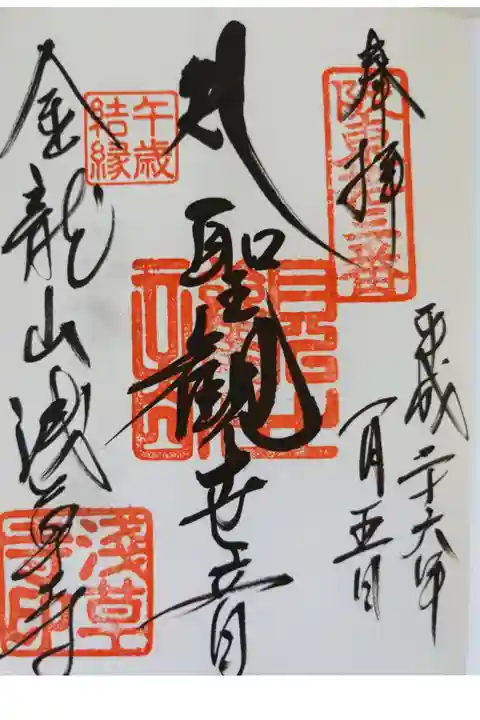 奉拝
坂東十三番
平成二十六年
一月五日
聖観世音
午歳
結縁
金龍山浅草寺
浅草
寺印